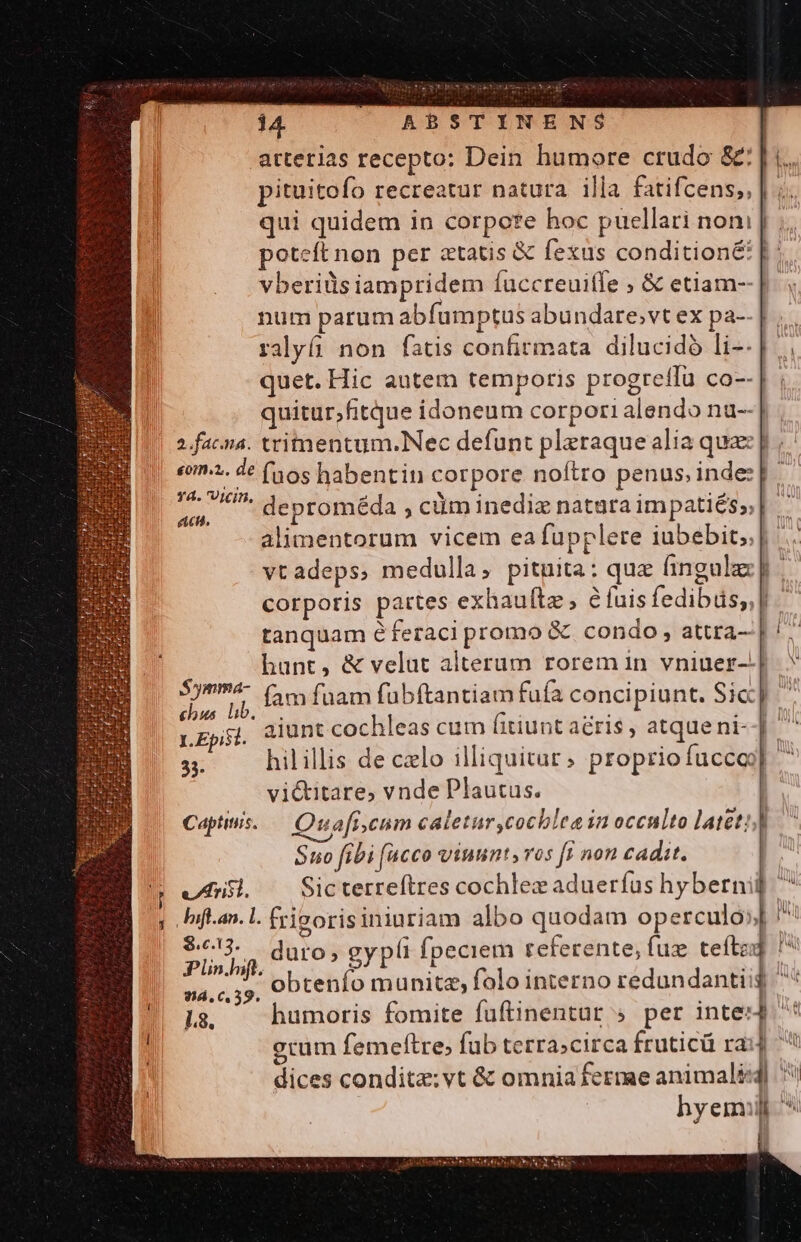 14 ABSTINENS
arterias recepto: Dein humore crudo &
pituitoſo recreatur natura illa fatiſcens,
qui quidem in corpore hoc puellari non
poteſt non per ætatis & ſexus conditioné
vberiùs iampridem ſuccreuiſſe , & etiam-
num parum abſumptus abundare, vt ex pa-
ralyſi non ſatis confirmata dilucidò li-
quet. Hic autem temporis progreſſu co-
quitur, fitque idoneum corpori alendo nu-
2. fac. na. trimentum. Nec deſunt plæraque alia quæ
com. 2. de ſuos habent in corpore noſtro penus, inde
ra. vicin. deproméda , cùm inediæ natura impatiés,
acu.
alimentorum vicem ea ſupplere iubebit,
vt adeps, medulla, pituita: quæ ſingulæ
corporis partes exhauſtæ, è ſuis ſedibus,
tanquam è feraci promo & condo, attra-
hunt, & velut alterum rorem in vniuer-
Symma- ſam ſuam ſubſtantiam fuſa concipiunt. Sic
chus lib.
1. Epist. aiunt cochleas cum ſitiunt aëris, atque ni-
33. hil illis de cælo illiquitur, proprio ſucco
victitare, vnde Plautus.
Captiuis. Quaſi, cum caletur, cochlea in occulto latét,
Suo ſibi ſucco viuunt, ros ſi non cadit.
Arist. Sic terreſtres cochleæ aduerſus hyberni
hiſt. an. l. frigoris iniuriam albo quodam operculo,
8. c. 13. duro, gypſi ſpeciem referente, ſuæ teſtæ
Plin. hiſt.
na. c. 39. obtenſo munitæ, ſolo interno redundanti
l. 8. humoris fomite ſuſtinentur , per inte-
grum ſemeſtre, ſub terra, circa fruticū ra-
dices conditæ: vt & omnia ferme animalia
hyemi